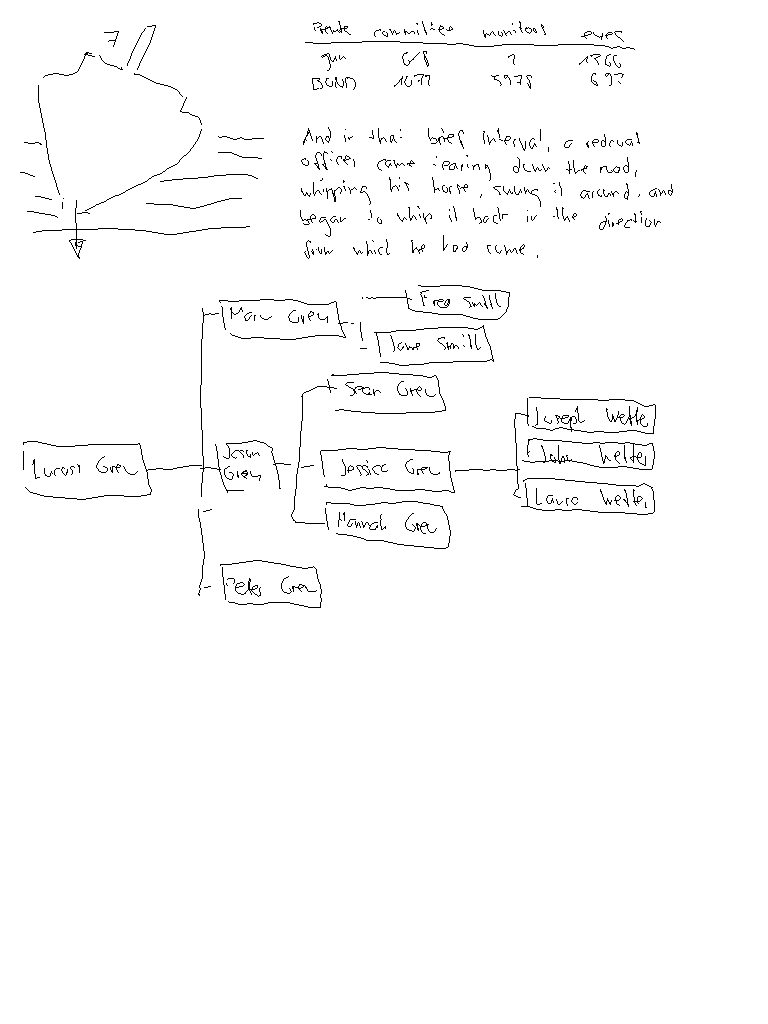 7
committee monitors eyes
gun 618 ? 1366
BOND 1077 5978 697
And in that brief interval, a redcoat
officer came tearing down the road,
whipping his horse, swung it around, and
began to whip it back in the direction
from which he had come.
Fred Smill
Marv Grey
Jane Smill
Sean Grey
Joseph Wetter
Jason
Grey
Jessica Grey
John Wetter
Grey
Laura Wetter
Hannah Grey
Peter Grey